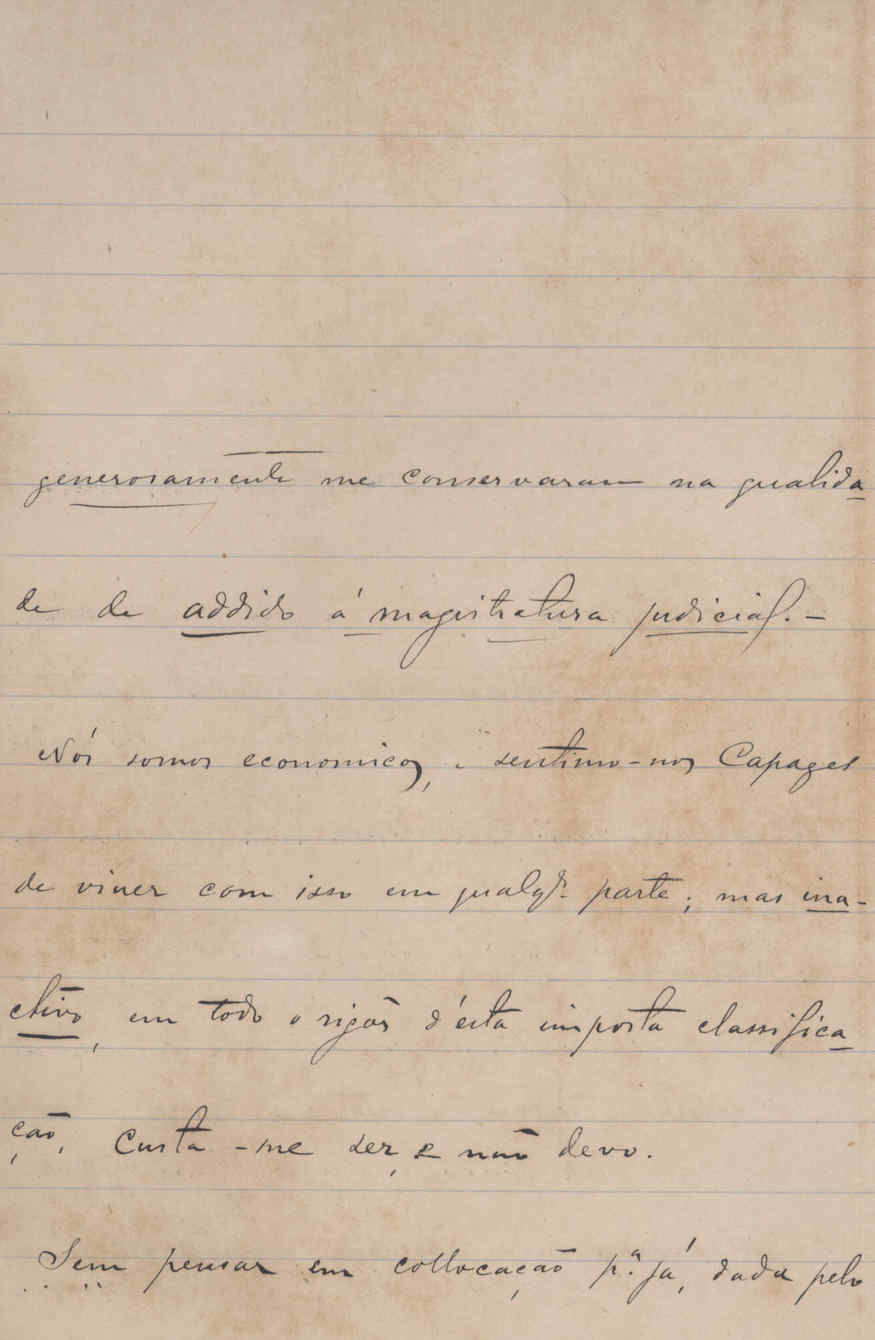 generosamente me conservaram na qualida
de de addido á magistratura judicial. —
Nós somos economicos, e sentimo-nos Capazes
de viver com isso em qualqr. parte; mas ina-
ctivo, em todo o rigôr d'esta imposta classifica
ção, custa-me ser, e não devo.
Sem pensar em collocação pª. já, dada pelo